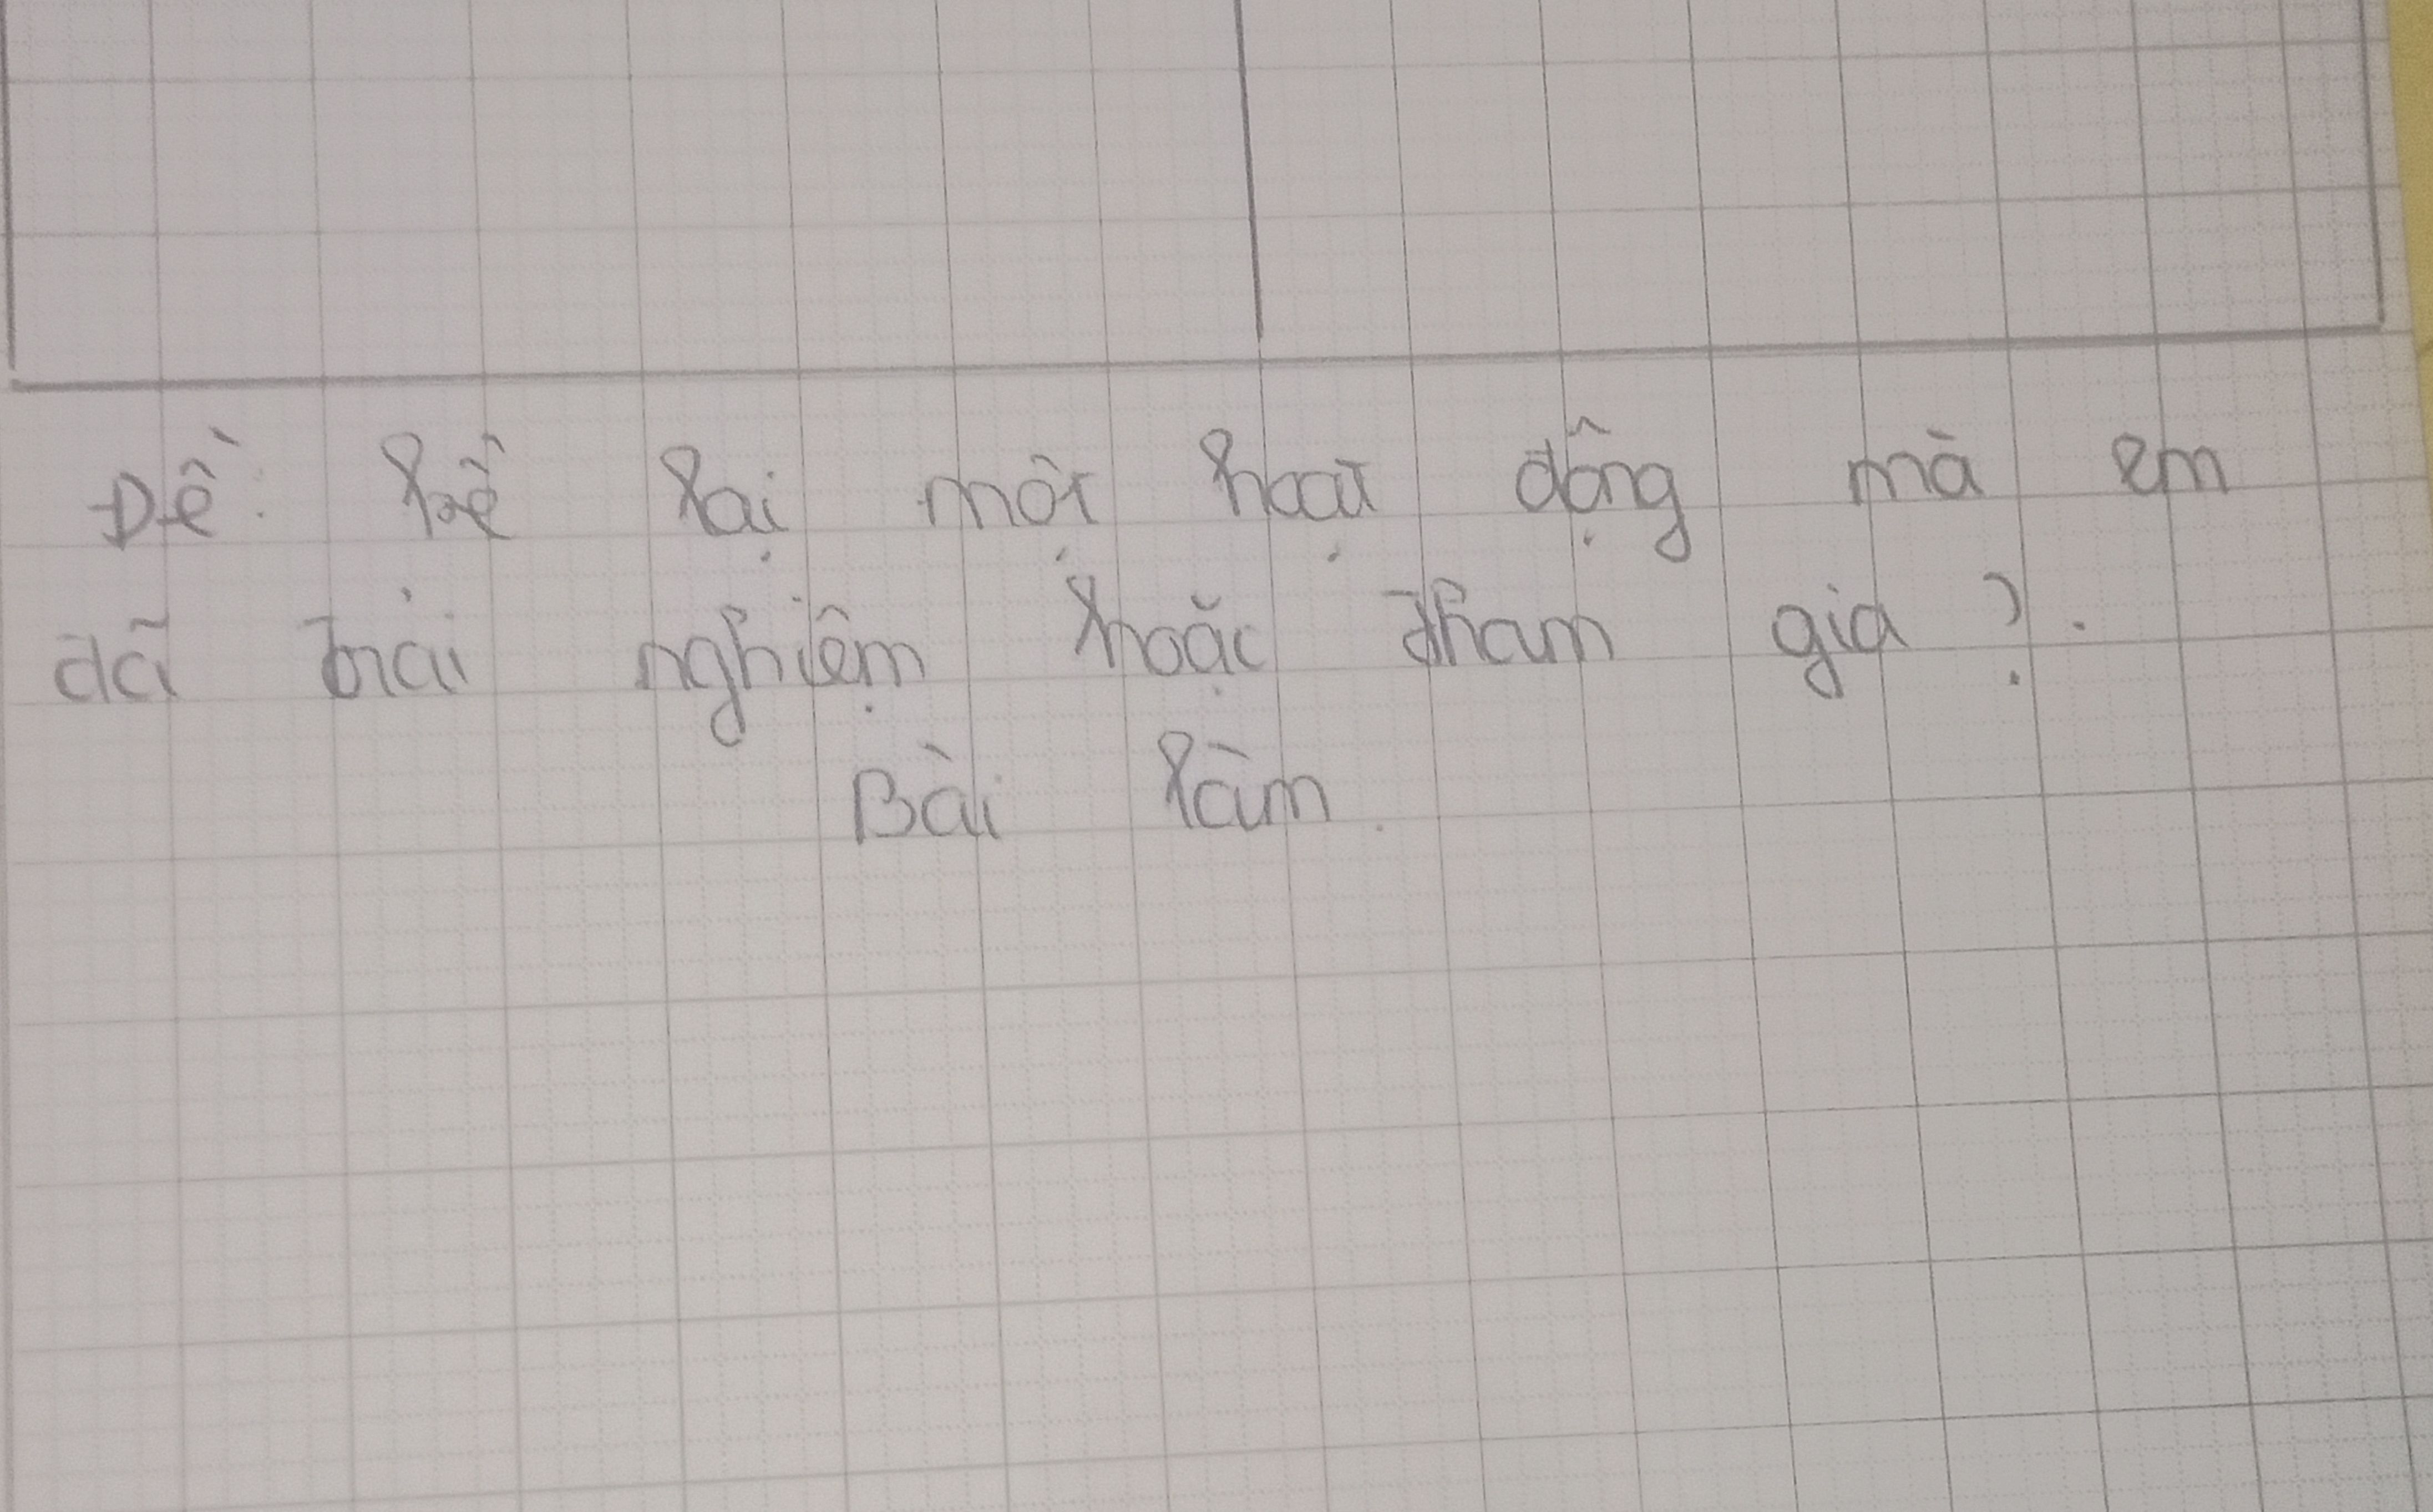 Đề: Kể lại một hoạt động mà em
đã trải nghiệm hoặc tham gia?.
Bài làm.